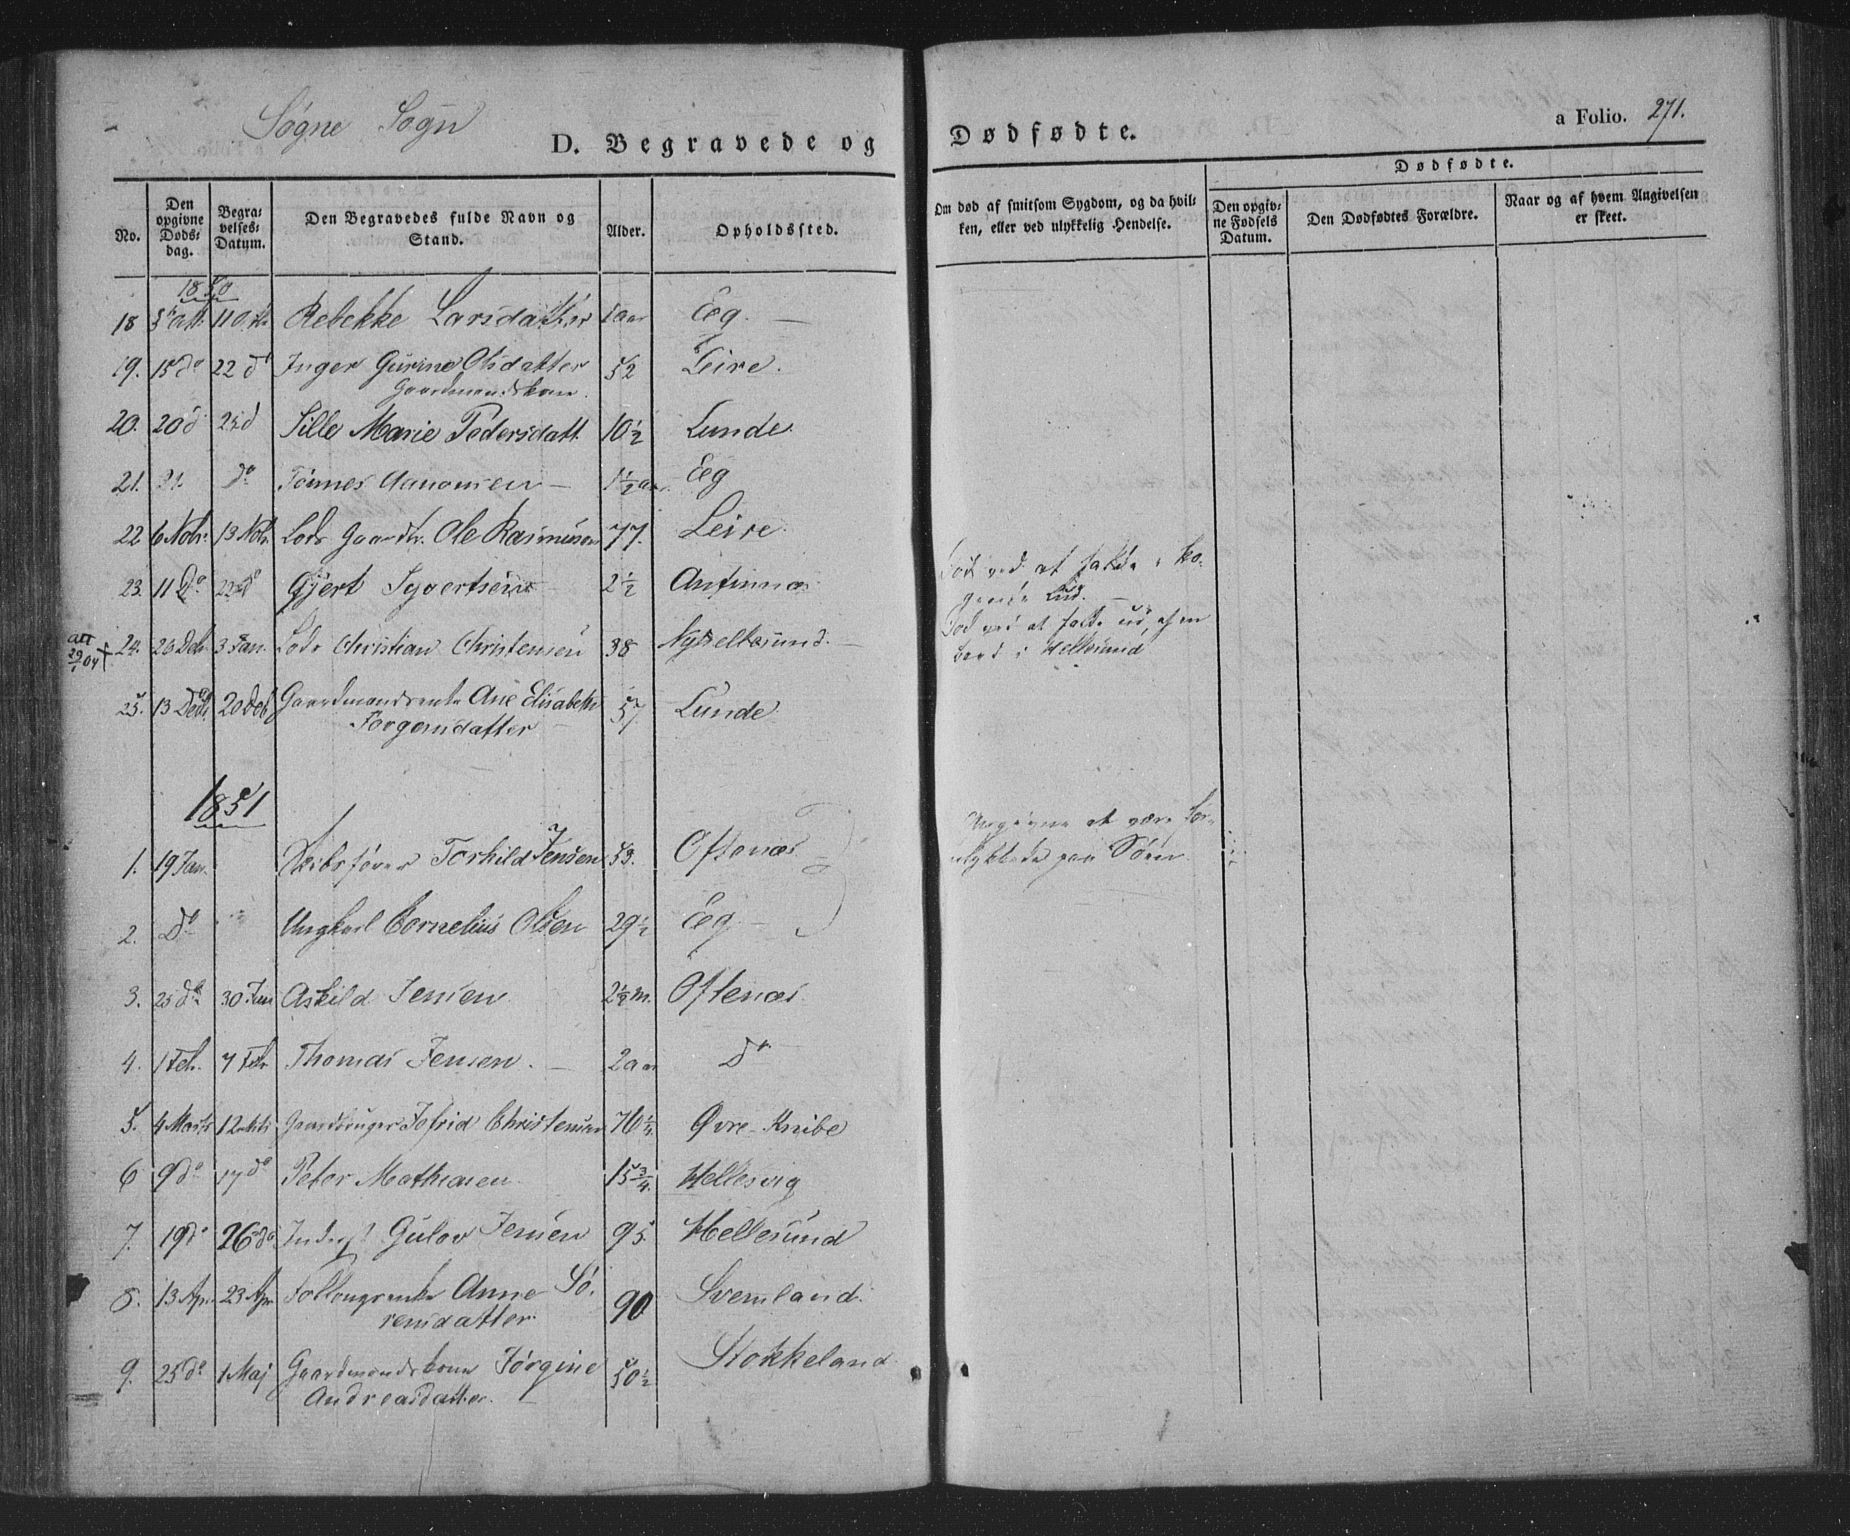 Søgne Sogn
D. Begravede og Dødfødte.
a Folio. 271.
No.
Den opgivne Dødsdag.
Begravelses-Datum.
Den Begravedes fulde Navn og Stand.
Alder.
Opholdssted.
Om død af smitsom Sygdom, og da hvilken, eller ved ulykkelig Hendelse.
Dødfødte.
Den opgivne Fødsels Datum.
Den Dødfødtes Forældre.
Naar og af hvem Angivelsen er skeet.
1850
18 Rebekke Larsdatter Eeg.
19. 15 do 22 do Inger Gurine Olsdatter 52 Leire.
Gaardmandskone.
20. 20 d Sille Marie Pedersdatt 10½ Lunde.
21. 21 do Tønnes Aanonsen 1½ aar Eeg
22 6 Nobr. 13 Nobr. Lods Gaardbr. Ole Rasmusen 77. Leire.
23. 11 Do Gjert Syvertsen 2½
Død ved at falde i ko-
gende Lud.
att 29/1 04
24. 3 Jan. Lods Christian Christensen 38
Død ved at falde ud af en
Baad i Hellesund
25. 13 20 Deb Gaardmandsenke Ane Elisabeth 57 Lunde
Jørgensdatter
1851
1. 19 Jan. Skibsfører Torkild Jensen 53. Oftenæs
Angivne at være for-
ulykkede paa Søen.
2. Do Ungkarl Cornelius Olsen 29½ Eeg
3. 25 do 30 Jan Askild Jensen 2½ m. Oftenæs.
4. 1 Feb. 7 Feb Thomas Jensen. 2 aar do
5. 4 Marts 12 Mts Gaardbruger Christensen Øvre Knibe
6 9 do 17 do Peter Mathiasen 15¾. Hellesvig
7. 19 do 26 do Inderst Gulov Jensen 95. Hellesund
8. 13 Apr. 23 Apr Anne Sø- 90
rensdatter
9. 25 do 1 Maj Gaardmandskone Jørgine 50½ Stokkeland
Andreasdatter.